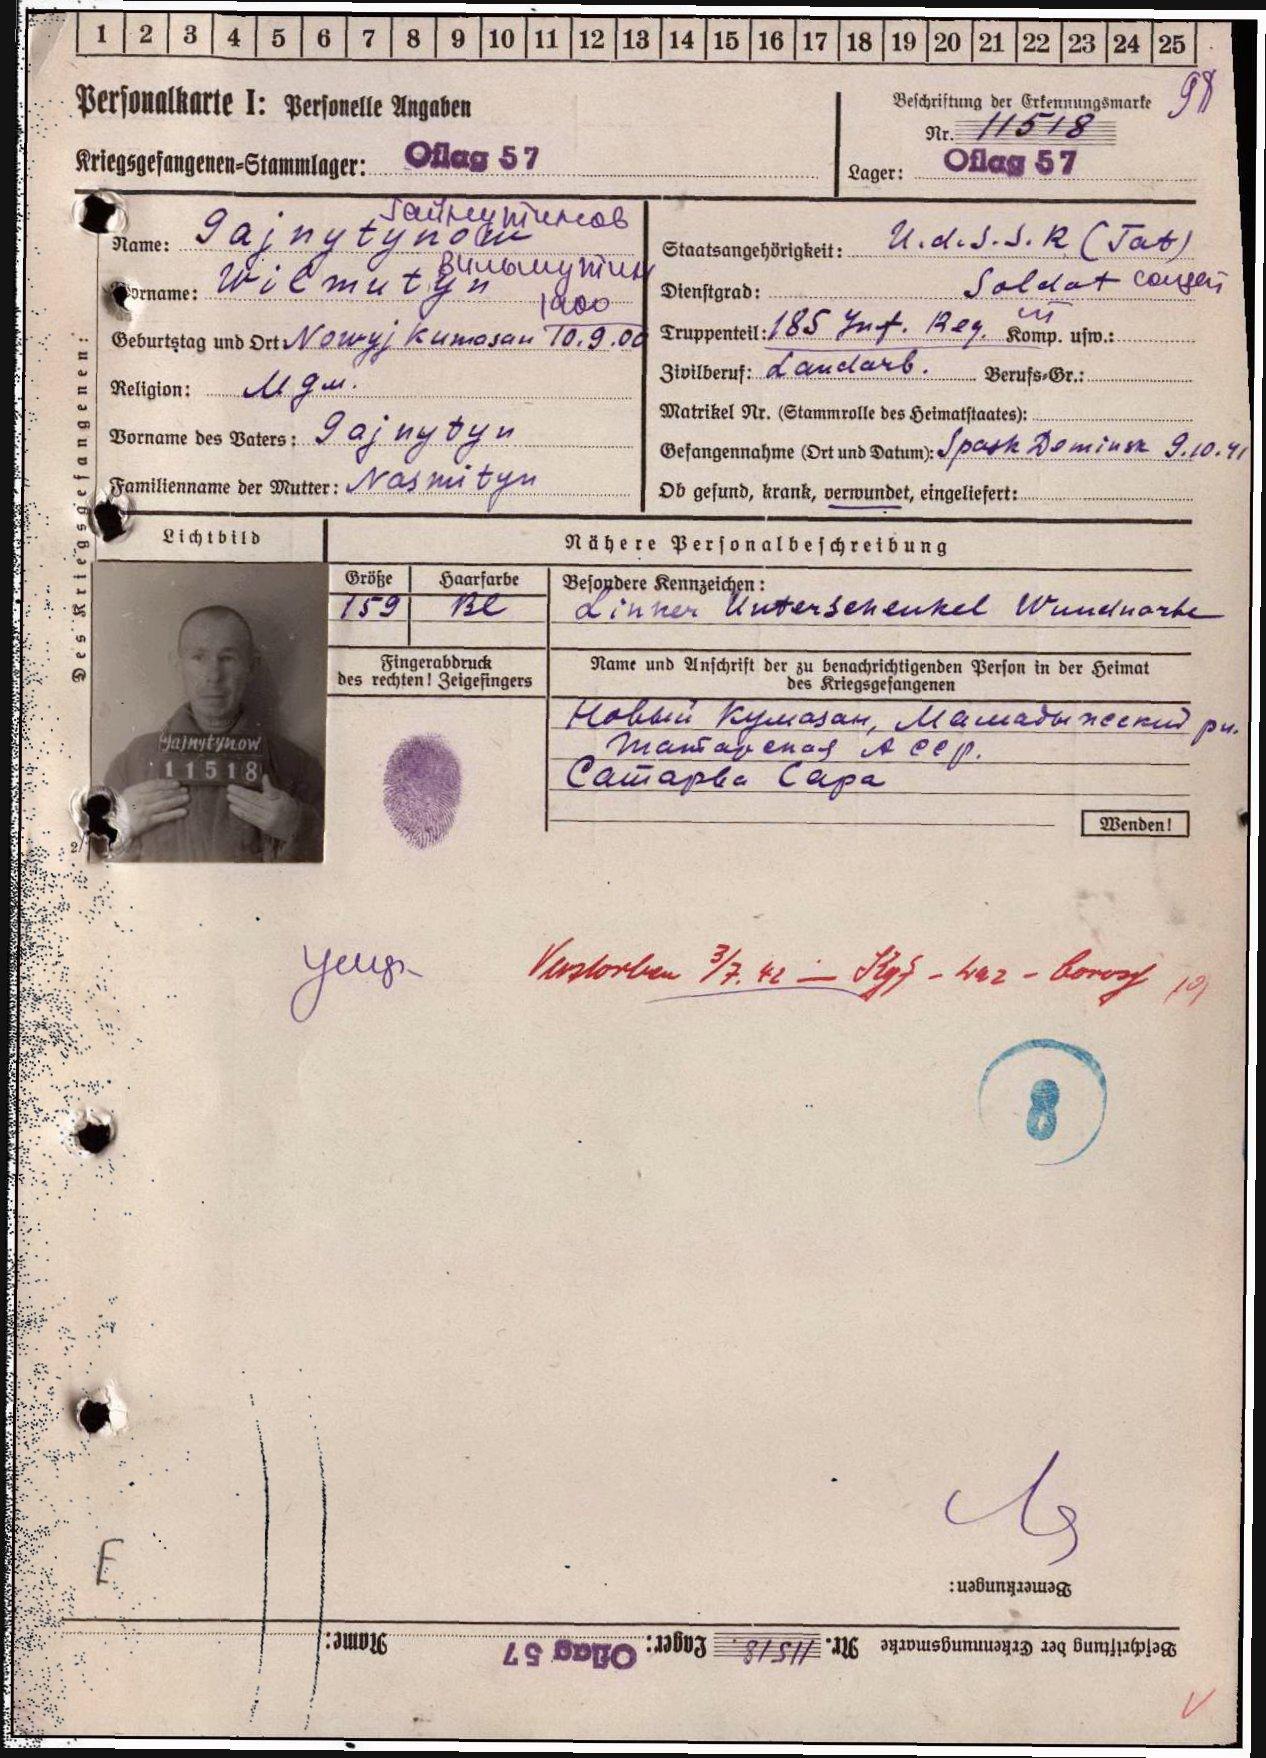 1 2 3 4 5 6 7 8 9 10 11 12 13 14 15 16 17 18 19 20 21 22 23 24 25
Personalkarte I: Personelle Angaben
Beschriftung der Erkennungsmarke
98
Nr. 11518
Kriegsgefangenen=Stammlager: Oflag 57
Lager: Oflag 57
Des Kriegsgefangenen:
Гайнутинов
Name: Gajnytynow
Вильмутин
Vorname: Wilmutyn
1900
Geburtstag und Ort: Nowyj Kumasan 10.9.00
Religion: Mgm.
Vorname des Vaters: Gajnytyn
Familienname der Mutter: Nasmityn
Staatsangehörigkeit: U.d.S.S.R (Tat)
Dienstgrad: Soldat солдат
Truppenteil: 185 Inf. Reg. Komp. usw.:
Zivilberuf: Landarb. Berufs=Gr.:
Matrikel Nr. (Stammrolle des Heimatstaates):
Gefangennahme (Ort und Datum): Spask Deminsk 9.10.41
Ob gesund, krank, verwundet, eingeliefert:
Lichtbild
Nähere Personalbeschreibung
Größe
Haarfarbe
Besondere Kennzeichen:
159
Bl
Linker Unterschenkel Wundnarbe
Fingerabdruck
des rechten! Zeigefingers
Name und Anschrift der zu benachrichtigenden Person in der Heimat
des Kriegsgefangenen
Новый Кумазан, Мамадышский рн.
Татарская АССР.
Сатарва Сара
Gajnytynow
11518
Wenden!
Verstorben 3/7.42 – Kgf - Laz -
8
F
Bemerkungen:
Beschriftung der Erkennungsmarke Nr. 11518. Lager: Oflag 57 Name: